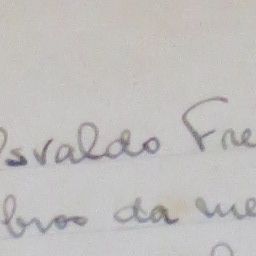 Osvaldo Fre
bros da me